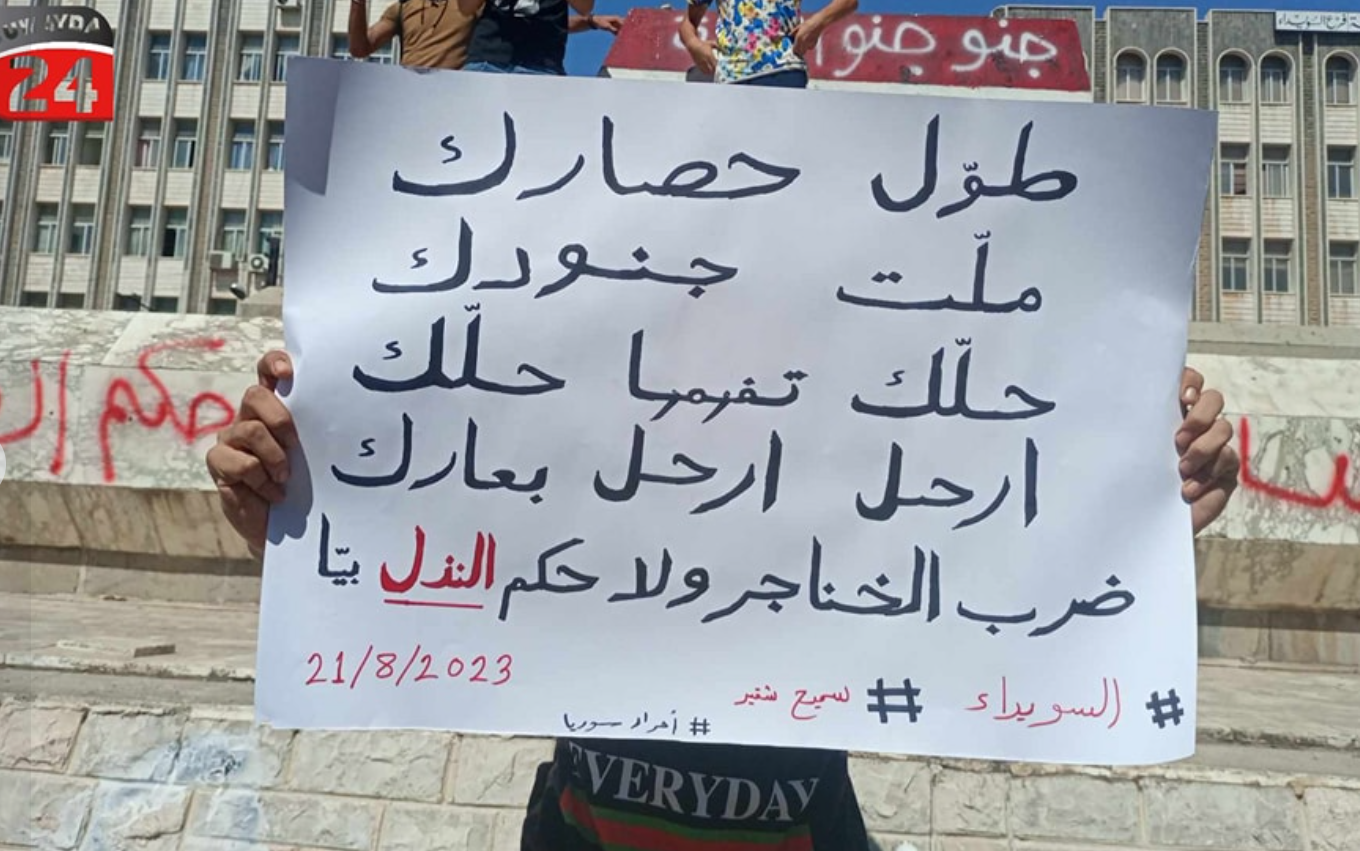 SUWAYDA
24
جنو جنو
طوّل حصارك
ملّت جنودك
حلّك تفهمها حلّك
ارحل ارحل بعارك
ضرب الخناجر ولا حكم النذل بيّا
21/8/2023
# السويداء # لسميح شقير
# أحرار سوريا
حكم
EVERYDAY